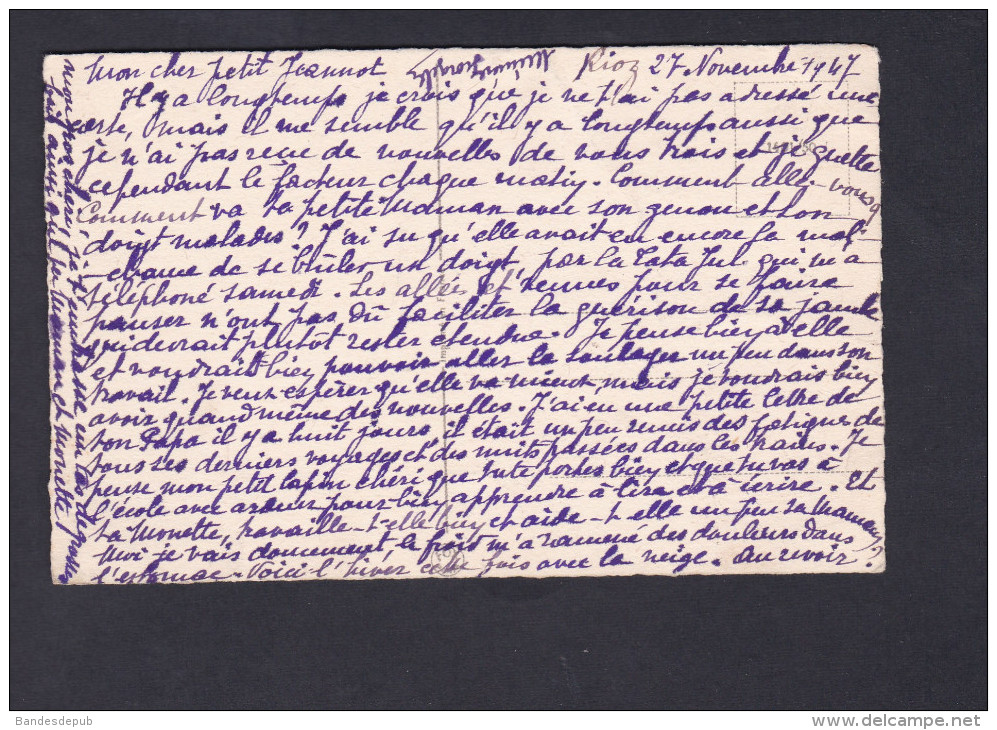 Mon cher petit Jeannot
Rioz 27 Novembre 1947
Il y a longtemps je crois que je ne t'ai pas adressé une
carte, mais il me semble qu'il y a longtemps aussi que
je n'ai pas reçu de nouvelles de vous trois et je guette
cependant le facteur chaque matin. Comment allez-vous ?
Comment va ta petite Maman avec son genou et son
doigt malades ? J'ai su qu'elle avait eu encore la mal-
-chance de se brûler un doigt, par la Tata Ju qui m'a
téléphoné samedi. Les allées et venues pour se faire
panser n'ont pas dû faciliter la guérison de sa jambe
qui devrait plutôt rester étendue. Je pense bien à elle
et voudrait bien pouvoir aller la soulager un peu dans son
travail. Je veux espérer qu'elle va mieux, mais je voudrais bien
avoir quand même des nouvelles. J'ai eu une petite lettre de
ton Papa il y a huit jours, il était un peu remis des fatigues de
tous ses derniers voyages et des nuits passées dans les trains. Je
pense mon petit lapin chéri que tu te portes bien et que tu vas à
l'école avec ardeur pour bien apprendre à lire et à écrire. Et
ta Monette, travaille-t-elle bien et aide-t-elle un peu sa Maman ?
Moi je vais doucement, le froid m'a ramené des douleurs dans
l'estomac. Voici l'hiver cette fois avec la neige. Au revoir.
mon Jean chéri, je t'embrasse
ainsi que ta Maman et Monette !
Bandesdepub
www.delcampe.net